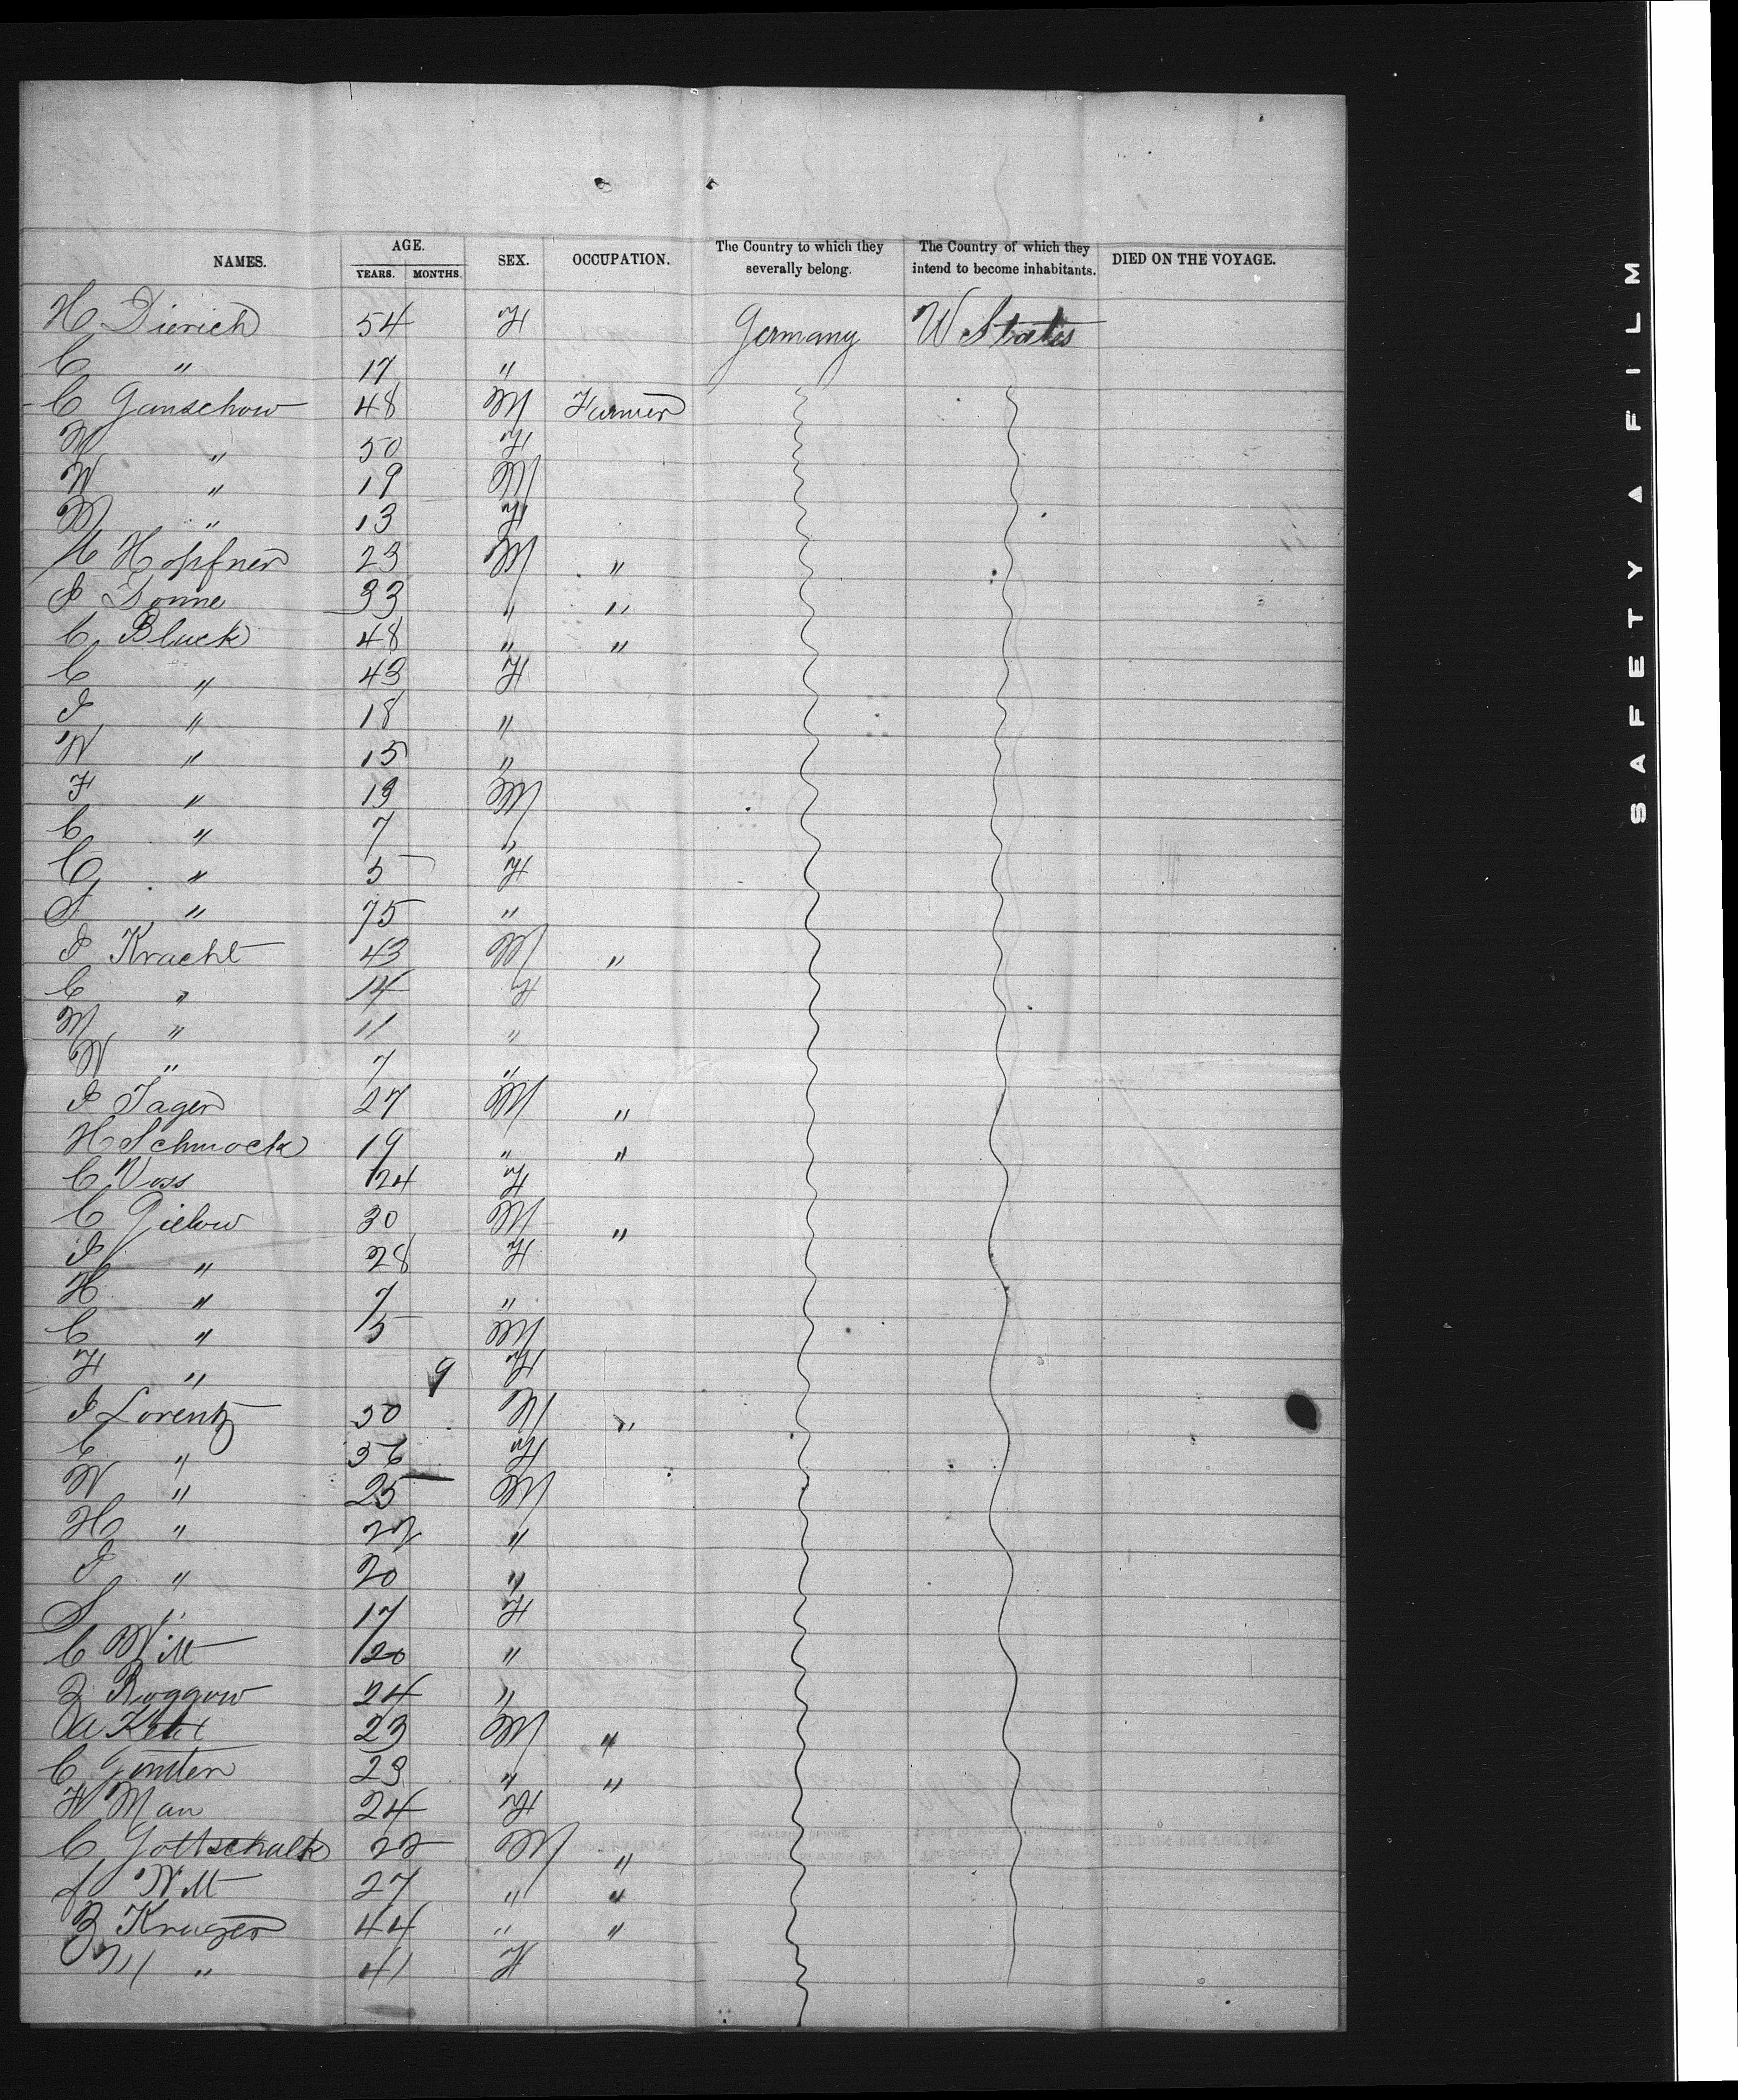 NAMES. AGE. YEARS. MONTHS. SEX. OCCUPATION. The Country to which they severally belong. The Country of which they intend to become inhabitants. DIED ON THE VOYAGE.
H Dierich 54 F Germany W States
C " 17 "
C Ganschow 48 M Farmer
W " 50 F
W " 19 M
M " 13 F
H Hopfner 23 M "
J Donne 33 " "
C Bluck 48 " "
C " 43 F
J " 18 "
W " 15 "
F " 13 M
C " 7 "
G " 5 F
S " 75 "
J Kracht 43 M "
C " 14 F
M " 11 "
W " 7 "
J Jager 27 M "
H Schmock 19 " "
C Voss 24 F
C Gielow 30 M "
J " 28 F
H " 7 "
C " 5 M
F " 9 F
J Lorentz 50 M "
C " 56 F
W " 25 M
H " 22 "
J " 20 "
S " 17 F
C Witt 20 "
Z Roggow 24 "
A 23 M "
C 23 " "
F Man 24 F
C Gottschalk 22 M "
L Witt 27 " "
Z Kruger 44 " "
M " 41 F
SAFETY A FILM